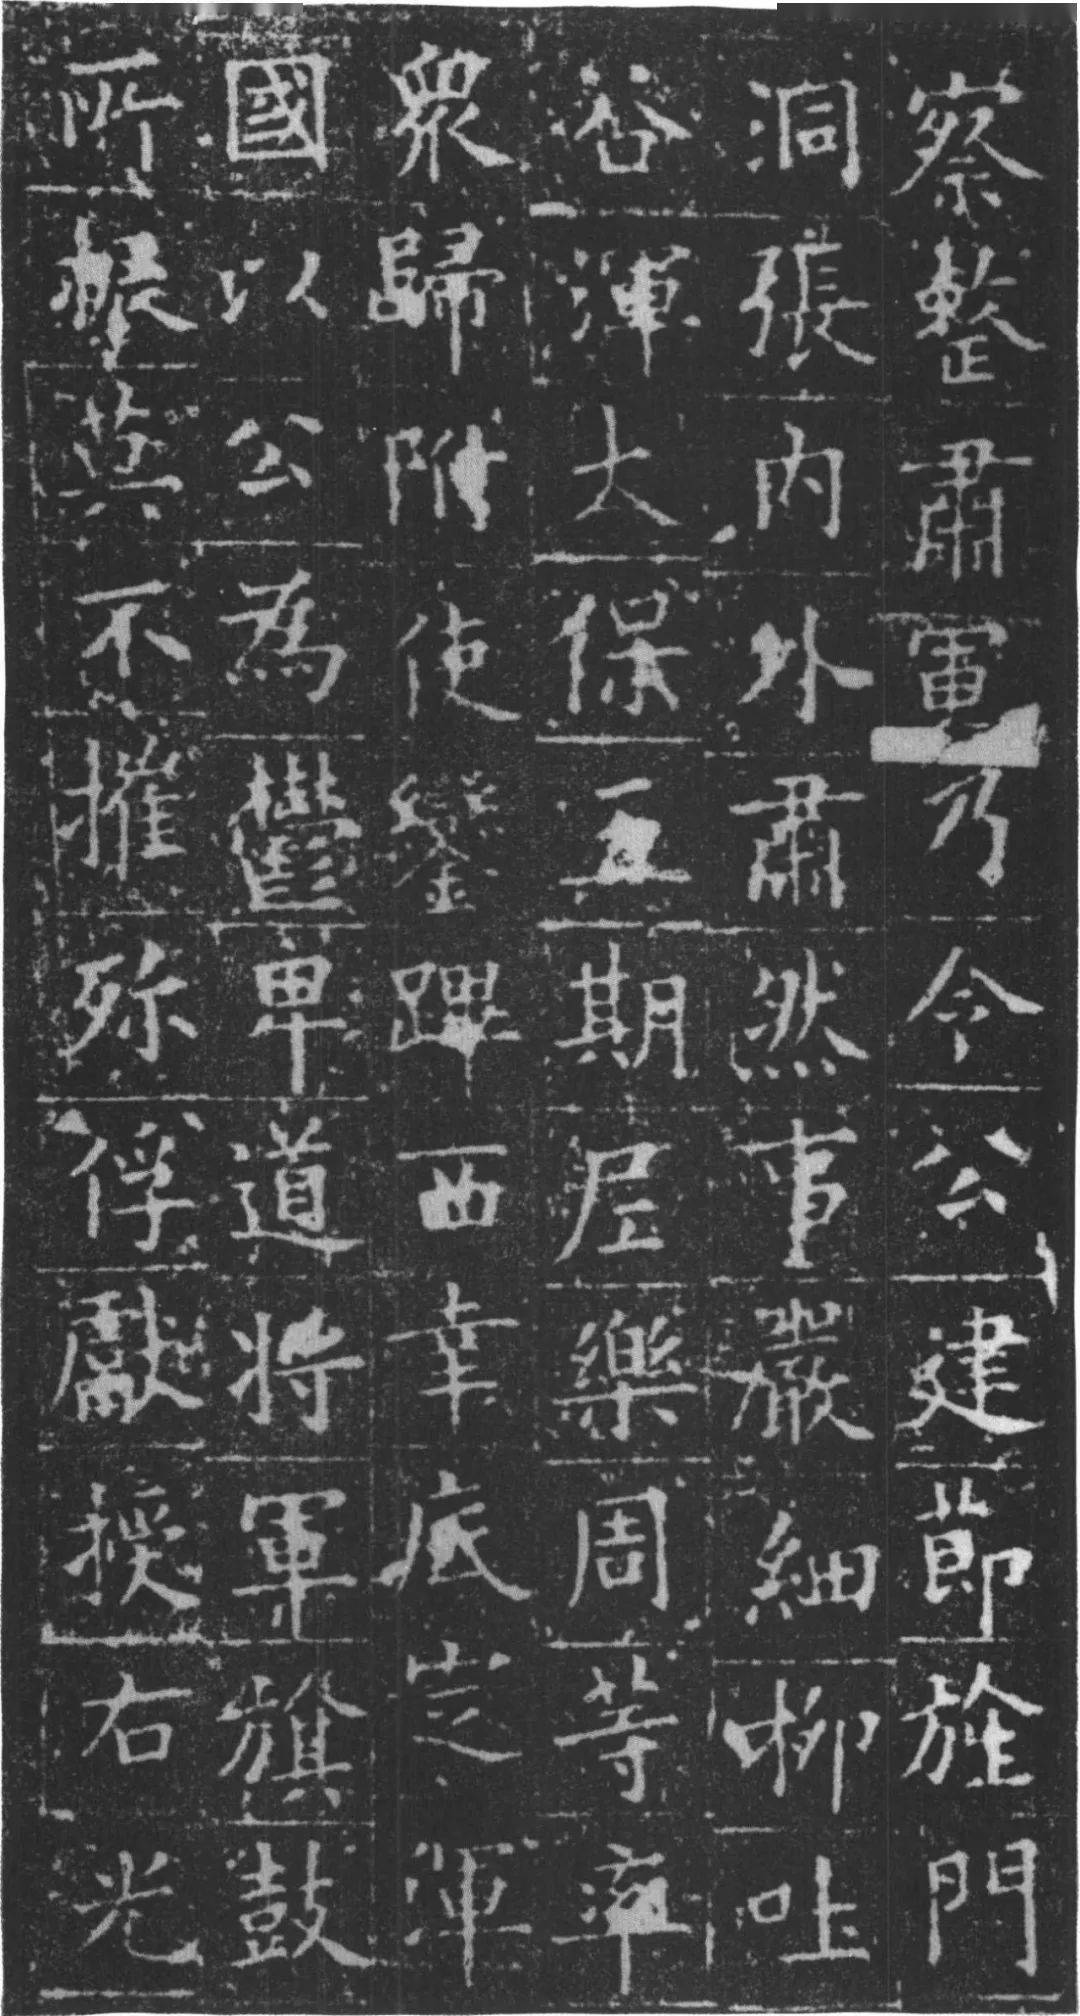 察整肅軍乃令公建節旌門
洞張內外肅然事嚴細柳吐
谷渾大保五期尼樂周等率
眾歸附使鑾蹕西幸底定渾
國以公為鬱卑道將軍旗鼓
所振莫不摧殄俘獻授右光